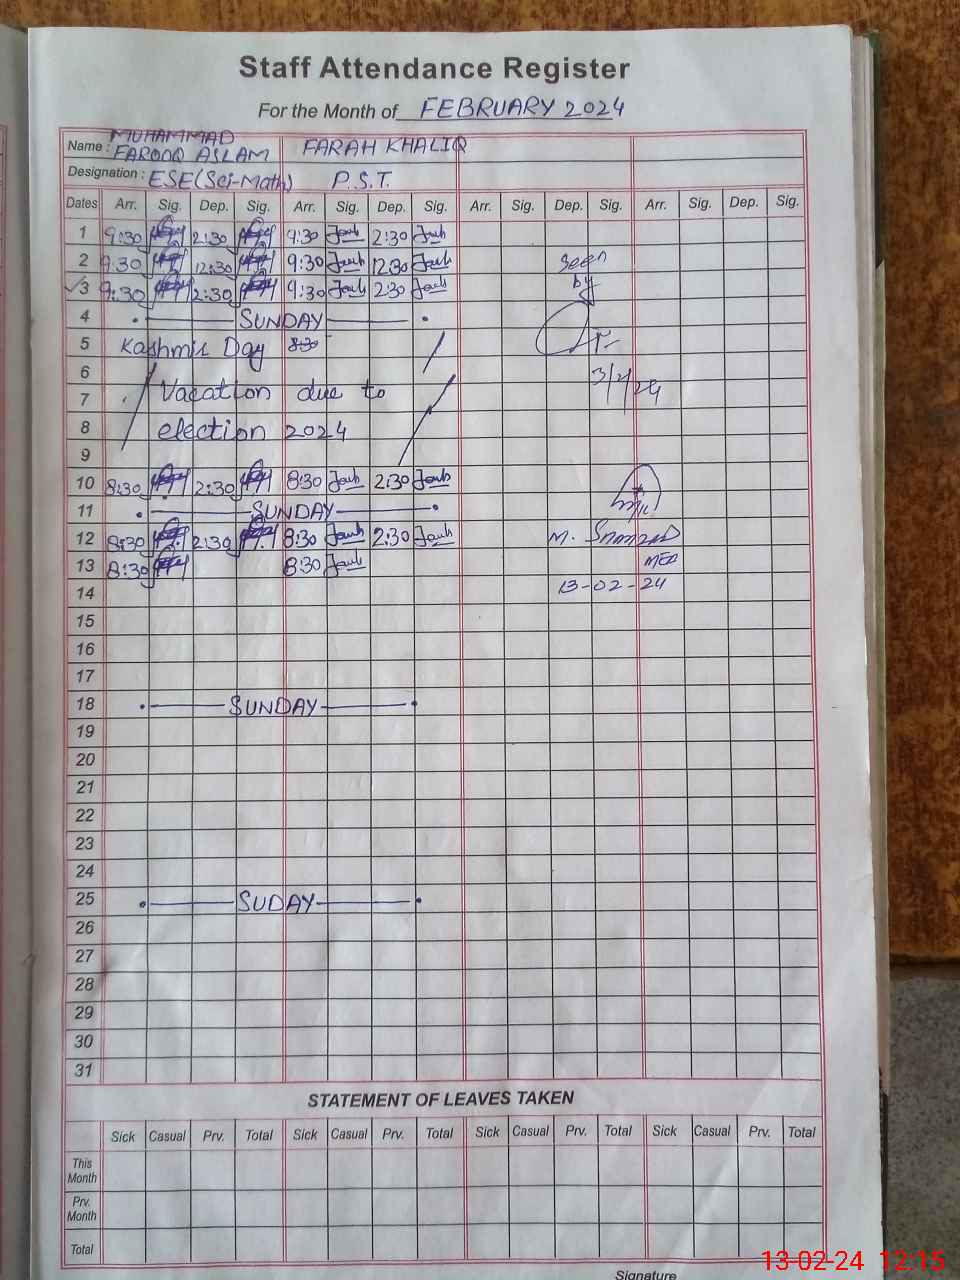 Staff Attendance Register
For the Month of FEBRUARY 2024
Name : MUHAMMAD FAROOQ ASLAM FARAH KHALIQ
Designation : ESE(Sci-Math) P.S.T.
Dates Arr. Sig. Dep. Sig. Arr. Sig. Dep. Sig. Arr. Sig. Dep. Sig. Arr. Sig. Dep. Sig.
1 9:30 2:30 9:30 2:30
2 9:30 12:30 9:30 12:30 Seen
3 9:30 2:30 9:30 2:30 by
4 SUNDAY
5 Kashmir Day 8:30
6
7 Vacation due to 3/2/24
8 election 2024
9
10 8:30 2:30 8:30 2:30
11 SUNDAY
12 8:30 2:30 8:30 2:30 M.
13 8:30 8:30
14 13-02-24
15
16
17
18 SUNDAY
19
20
21
22
23
24
25 SUDAY
26
27
28
29
30
31
STATEMENT OF LEAVES TAKEN
Sick Casual Prv. Total Sick Casual Prv. Total Sick Casual Prv. Total Sick Casual Prv. Total
This Month
Prv. Month
Total
Signature
13-02-24 12:15